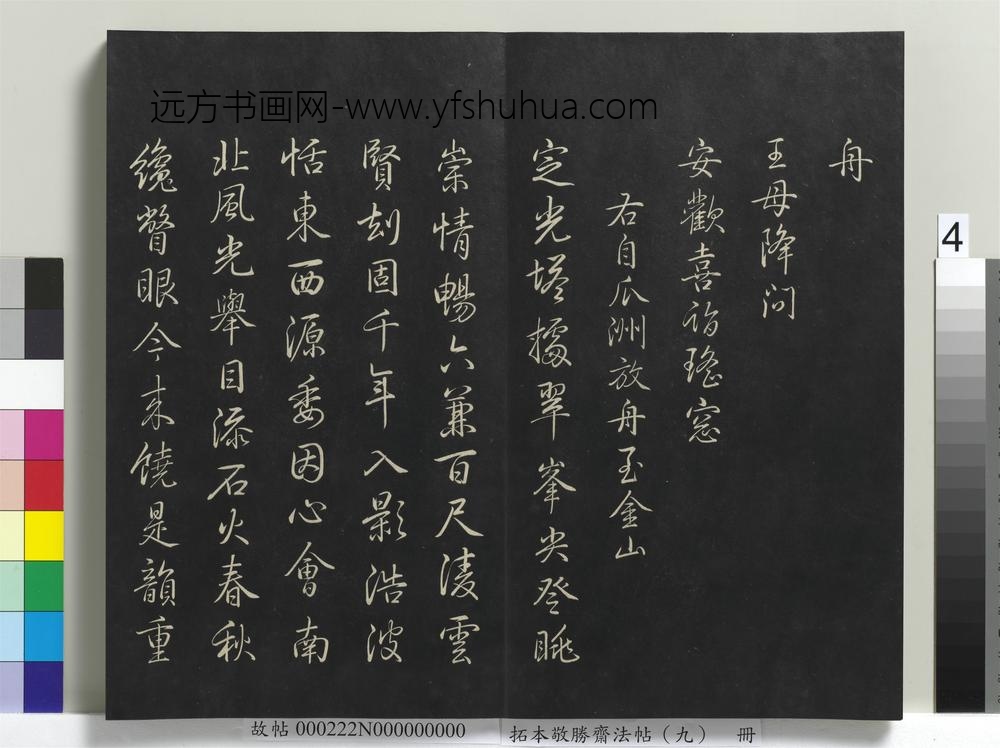 远方书画网-www.yfshuhua.com
舟
王母降问
安歡喜詣瑤窓
右自瓜洲放舟至金山
定光塔據翠峯尖登眺
崇情暢六兼百尺凌雲
賢刦固千年入影浩波
恬東西源委因心會南
北風光舉目添石火春秋
纔瞥眼今来饒是韻重
4
故帖 000222N000000000
拓本敬勝齋法帖（九） 冊